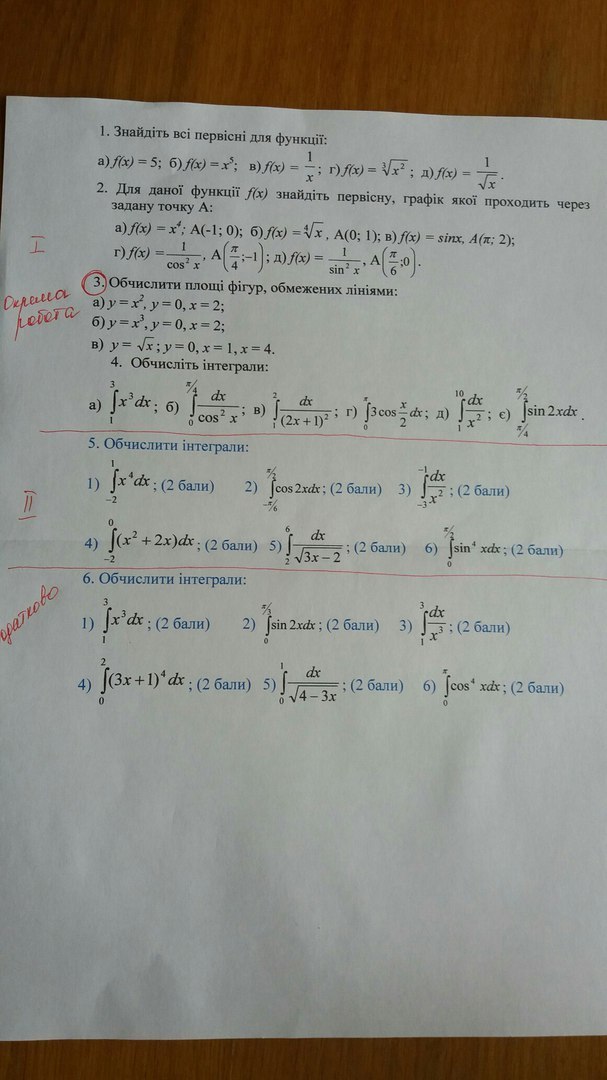 1. Знайдіть всі первісні для функції:
а) f(x) = 5; б) f(x) = x⁵; в) f(x) = 1/x ; г) f(x) = ∛x² ; д) f(x) = 1/√x .
2. Для даної функції f(x) знайдіть первісну, графік якої проходить через
задану точку А:
а) f(x) = x⁴; А(-1; 0); б) f(x) = ∜x , А(0; 1); в) f(x) = sinx, А(π; 2);
г) f(x) = 1/cos² x , А(π/4;−1); д) f(x) = 1/sin² x , А(π/6;0).
I
3. Обчислити площі фігур, обмежених лініями:
Окрема
робота
а) y = x², y = 0, x = 2;
б) y = x³, y = 0, x = 2;
в) y = √x ; y = 0, x = 1, x = 4.
4. Обчисліть інтеграли:
а) ∫₁³ x³ dx ; б) ∫₀^(π/4) dx/cos² x ; в) ∫₁² dx/(2x+1)² ; г) ∫₀^π 3cos x/2 dx ; д) ∫₁¹⁰ dx/x² ; є) ∫_(π/4)^(π/2) sin 2xdx .
5. Обчислити інтеграли:
1) ∫₋₂¹ x⁴ dx ; (2 бали) 2) ∫_(−π/6)^(π/2) cos 2xdx ; (2 бали) 3) ∫₋₃⁻¹ dx/x² ; (2 бали)
II
4) ∫₋₂⁰ (x² + 2x)dx ; (2 бали) 5) ∫₂⁶ dx/√(3x−2) ; (2 бали) 6) ∫₀^(π/2) sin⁴ xdx ; (2 бали)
6. Обчислити інтеграли:
одатково
1) ∫₁³ x³ dx ; (2 бали) 2) ∫₀^(π/3) sin 2xdx ; (2 бали) 3) ∫₁³ dx/x³ ; (2 бали)
4) ∫₀² (3x+1)⁴ dx ; (2 бали) 5) ∫₀¹ dx/√(4−3x) ; (2 бали) 6) ∫₀^π cos⁴ xdx ; (2 бали)